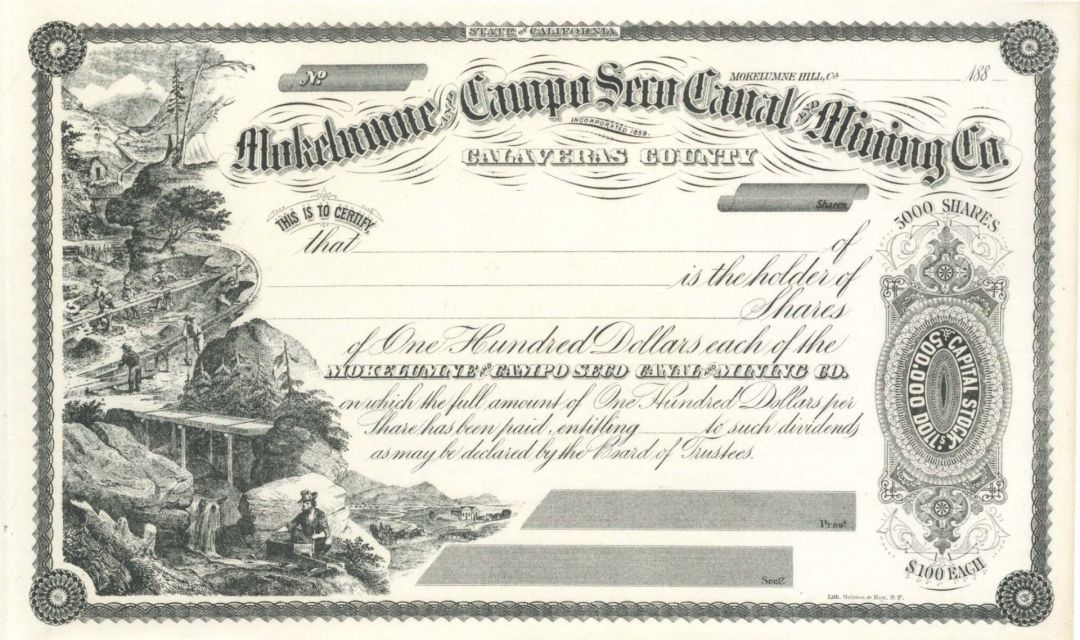 STATE OF CALIFORNIA
No
MOKELUMNE HILL, Ca 188
Mokelumne AND Campo Seco Canal AND Mining Co.
INCORPORATED 1859.
CALAVERAS COUNTY
Shares
THIS IS TO CERTIFY
that of
is the holder of
Shares
of One Hundred Dollars each of the
MOKELUMNE AND CAMPO SECO CANAL AND MINING CO.
on which the full amount of One Hundred Dollars per
Share has been paid, entitling to such dividends
as may be declared by the Board of Trustees.
5000 SHARES
CAPITAL STOCK
500.000 DOLLs
$100 EACH
Prest
Secy
Lith. Britton & Rey, S.F.